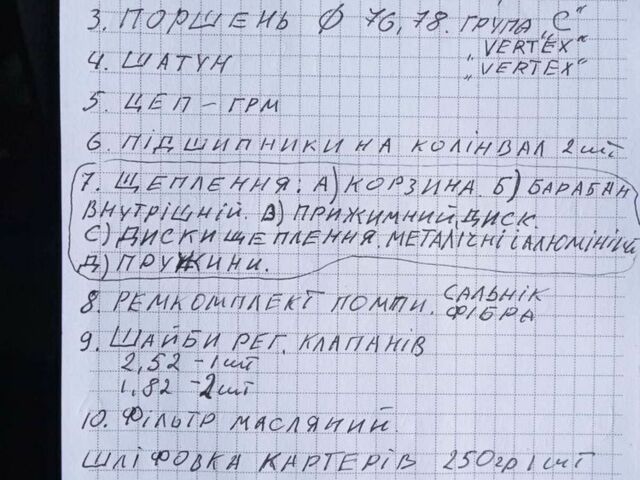 3. ПОРШЕНЬ Ø 76,78. ГРУПА „С"
„VERTEX"
4. ШАТУН „VERTEX"
5. ЦЕП – ГРМ
6. ПІДШИПНИКИ НА КОЛІНВАЛ 2шт
7. ЩЕПЛЕННЯ: А) КОРЗИНА. Б) БАРАБАН
ВНУТРІШНІЙ. В) ПРИЖИМНИЙ ДИСК.
С) ДИСКИ ЩЕПЛЕННЯ. МЕТАЛІЧНІ І АЛЮМІНІЙ
Д) ПРУЖИНИ.
8. РЕМКОМПЛЕКТ ПОМПИ. САЛЬНІК
ФІБРА
9. ШАЙБИ РЕГ. КЛАПАНІВ
2,52 – 1шт
1,82 – 2шт
10. ФІЛЬТР МАСЛЯНИЙ.
ШЛІФОВКА КАРТЕРІВ 250гр 1шт